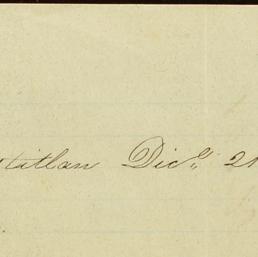 titlan Dicᵉ 21